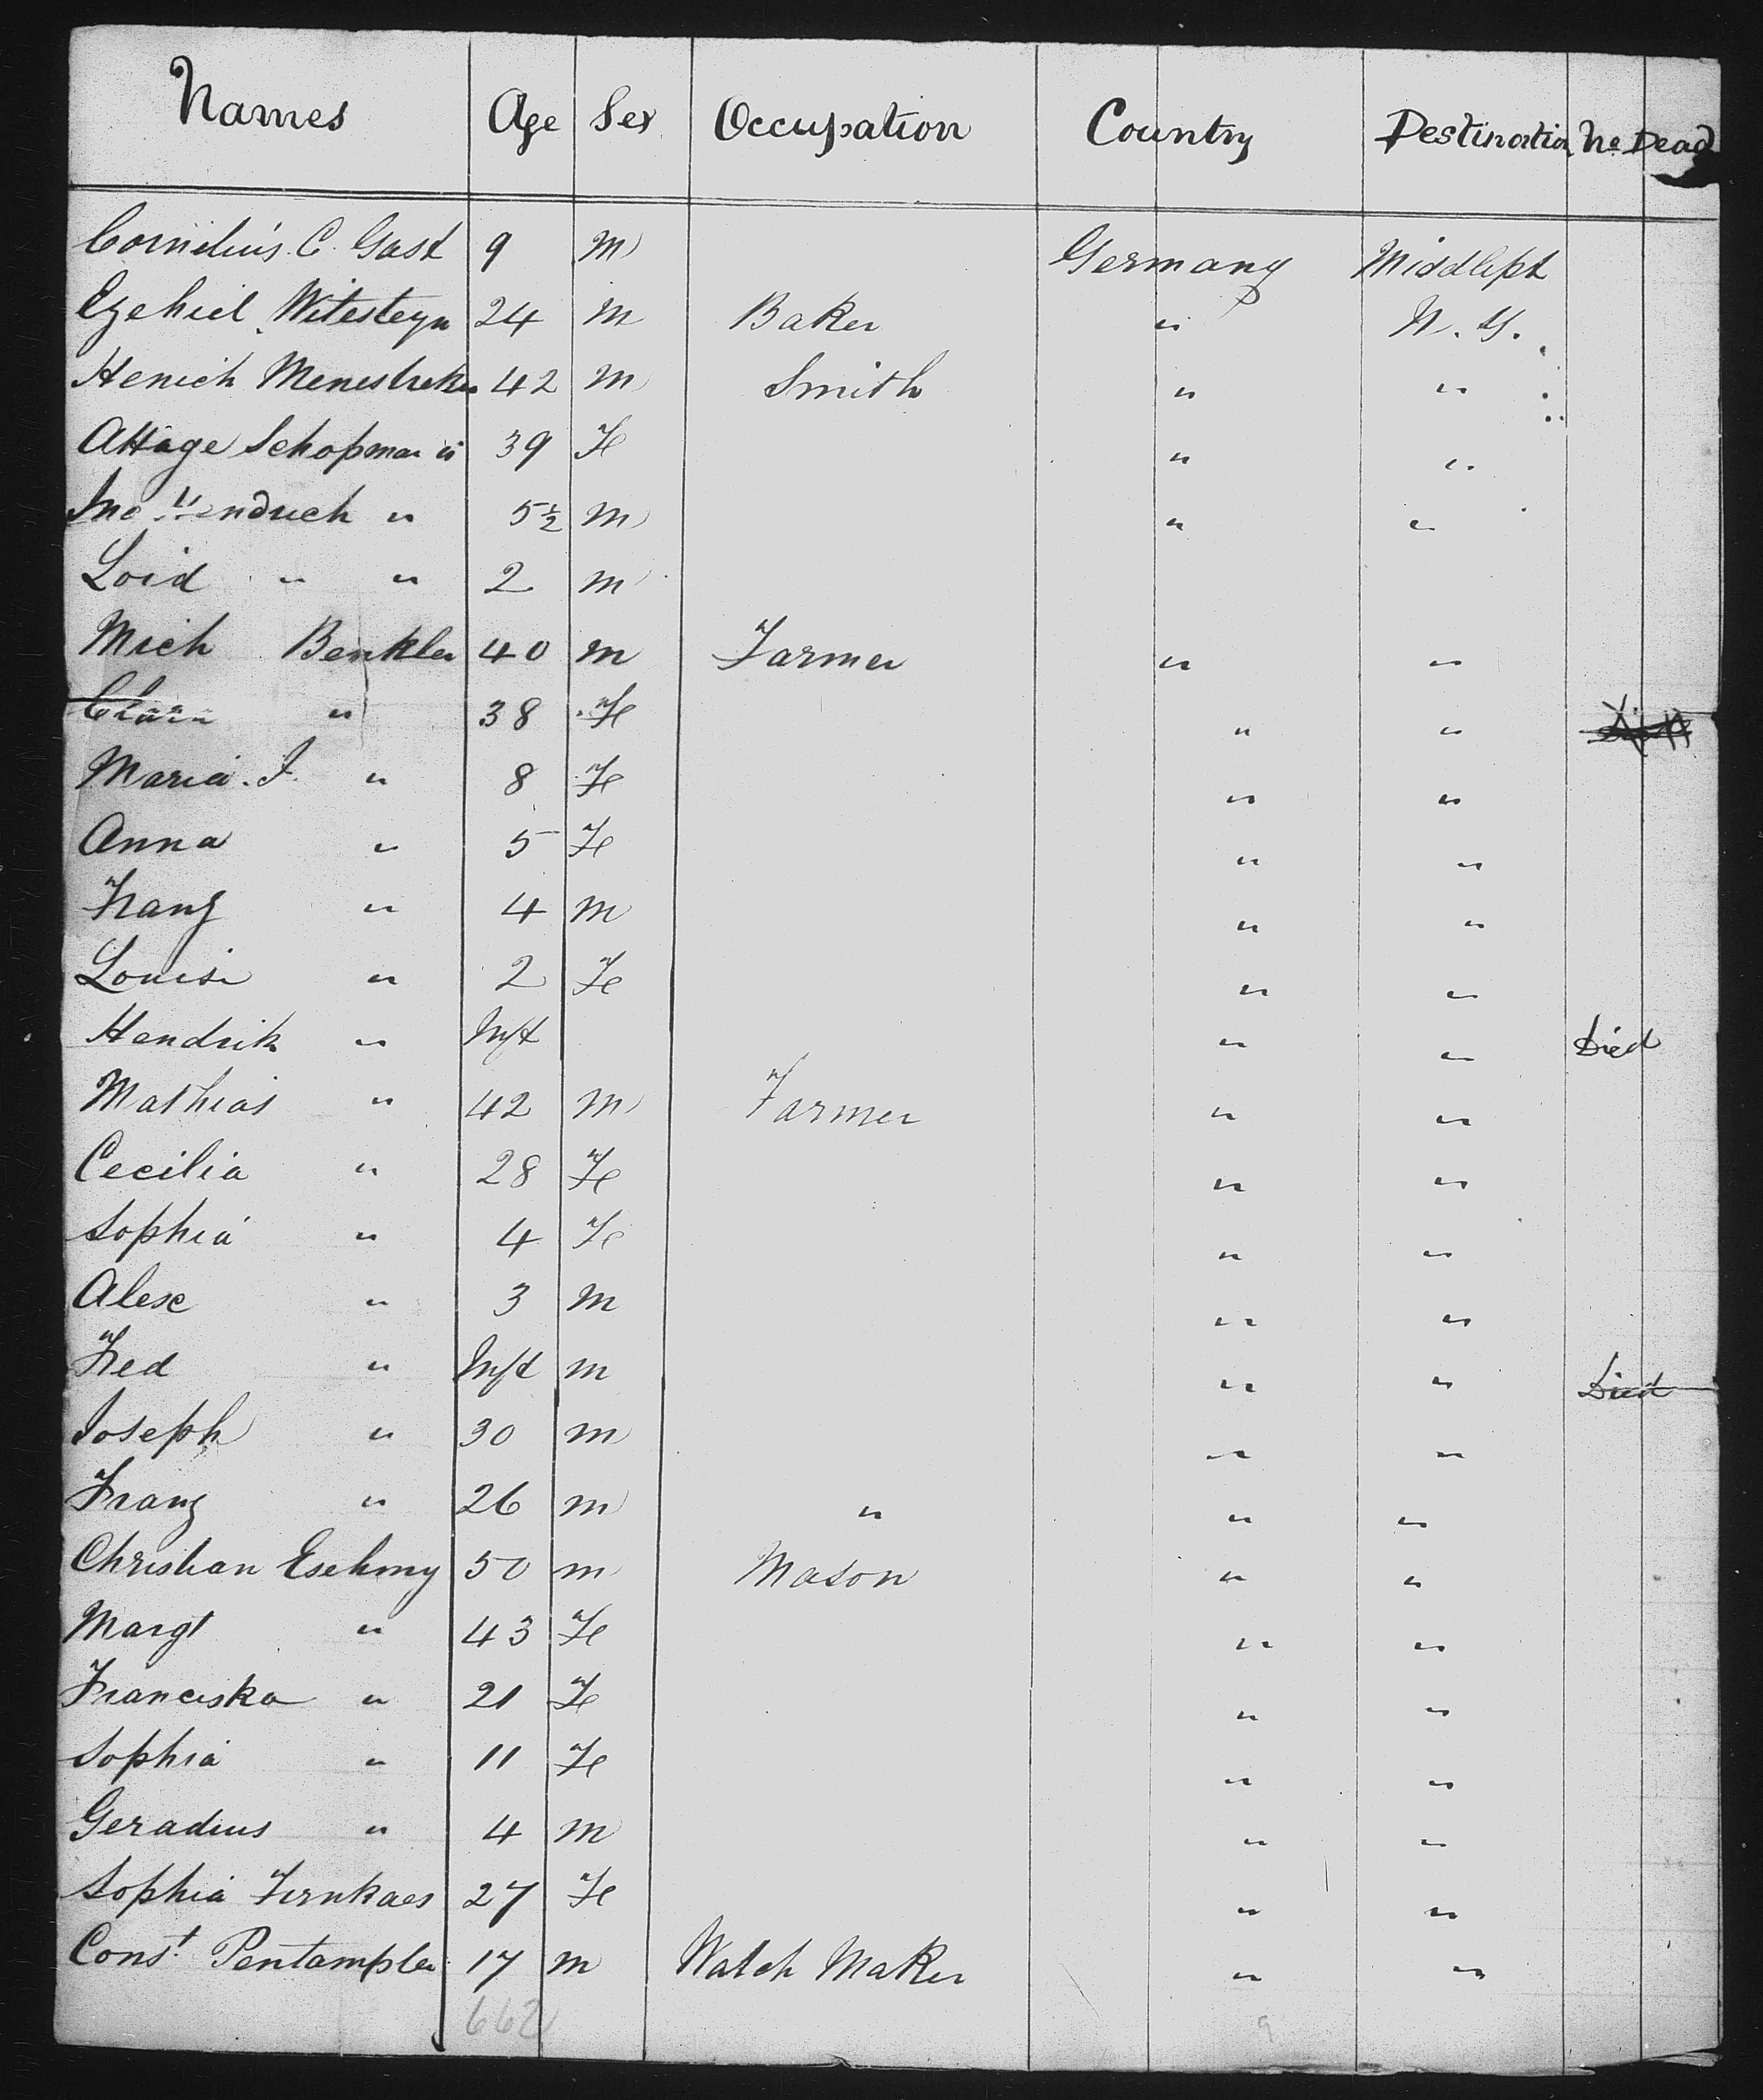 Names Age Sex Occupation Country Destination No Dead
Cornelius C. Gast 9 M Germany Middlept
Ezekiel Witesteyn 24 M Baker " N. Y.
Henich 42 M Smith " "
Schopman " 39 Fe " "
Jno Hendrich " 5½ M " "
Loid " " 2 M
Mich Benkler 40 M Farmer " "
Clara " 38 Fe " "
Maria. F. " 8 Fe " "
Anna " 5 Fe " "
Franz " 4 M " "
Louisa " 2 Fe " "
Hendrik " Inft " " Died
Mathias " 42 M Farmer " "
Cecilia " 28 Fe " "
Sophia " 4 Fe " "
Alex " 3 M " "
Fred " Inft M " " Died
Joseph " 30 M " "
Franz " 26 M " " "
Christian Esehmy 50 M Mason " "
Margt " 43 Fe " "
Franciska " 21 Fe " "
Sophia " 11 Fe " "
Geradius " 4 M " "
Sophia 27 Fe " "
Const Pentampler 17 M Watch Maker " "
662 9